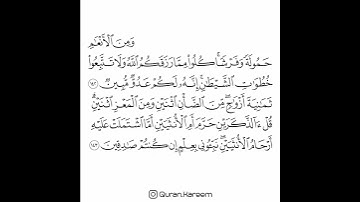 وَمِنَ ٱلْأَنْعَٰمِ
حَمُولَةً وَفَرْشًا ۚ كُلُوا۟ مِمَّا رَزَقَكُمُ ٱللَّهُ وَلَا تَتَّبِعُوا۟
خُطُوَٰتِ ٱلشَّيْطَٰنِ ۚ إِنَّهُۥ لَكُمْ عَدُوٌّ مُّبِينٌ ١٤٢
ثَمَٰنِيَةَ أَزْوَٰجٍ ۖ مِّنَ ٱلضَّأْنِ ٱثْنَيْنِ وَمِنَ ٱلْمَعْزِ ٱثْنَيْنِ ۗ
قُلْ ءَآلذَّكَرَيْنِ حَرَّمَ أَمِ ٱلْأُنثَيَيْنِ أَمَّا ٱشْتَمَلَتْ عَلَيْهِ
أَرْحَامُ ٱلْأُنثَيَيْنِ ۖ نَبِّـُٔونِى بِعِلْمٍ إِن كُنتُمْ صَٰدِقِينَ ١٤٣
Quran.Kareem